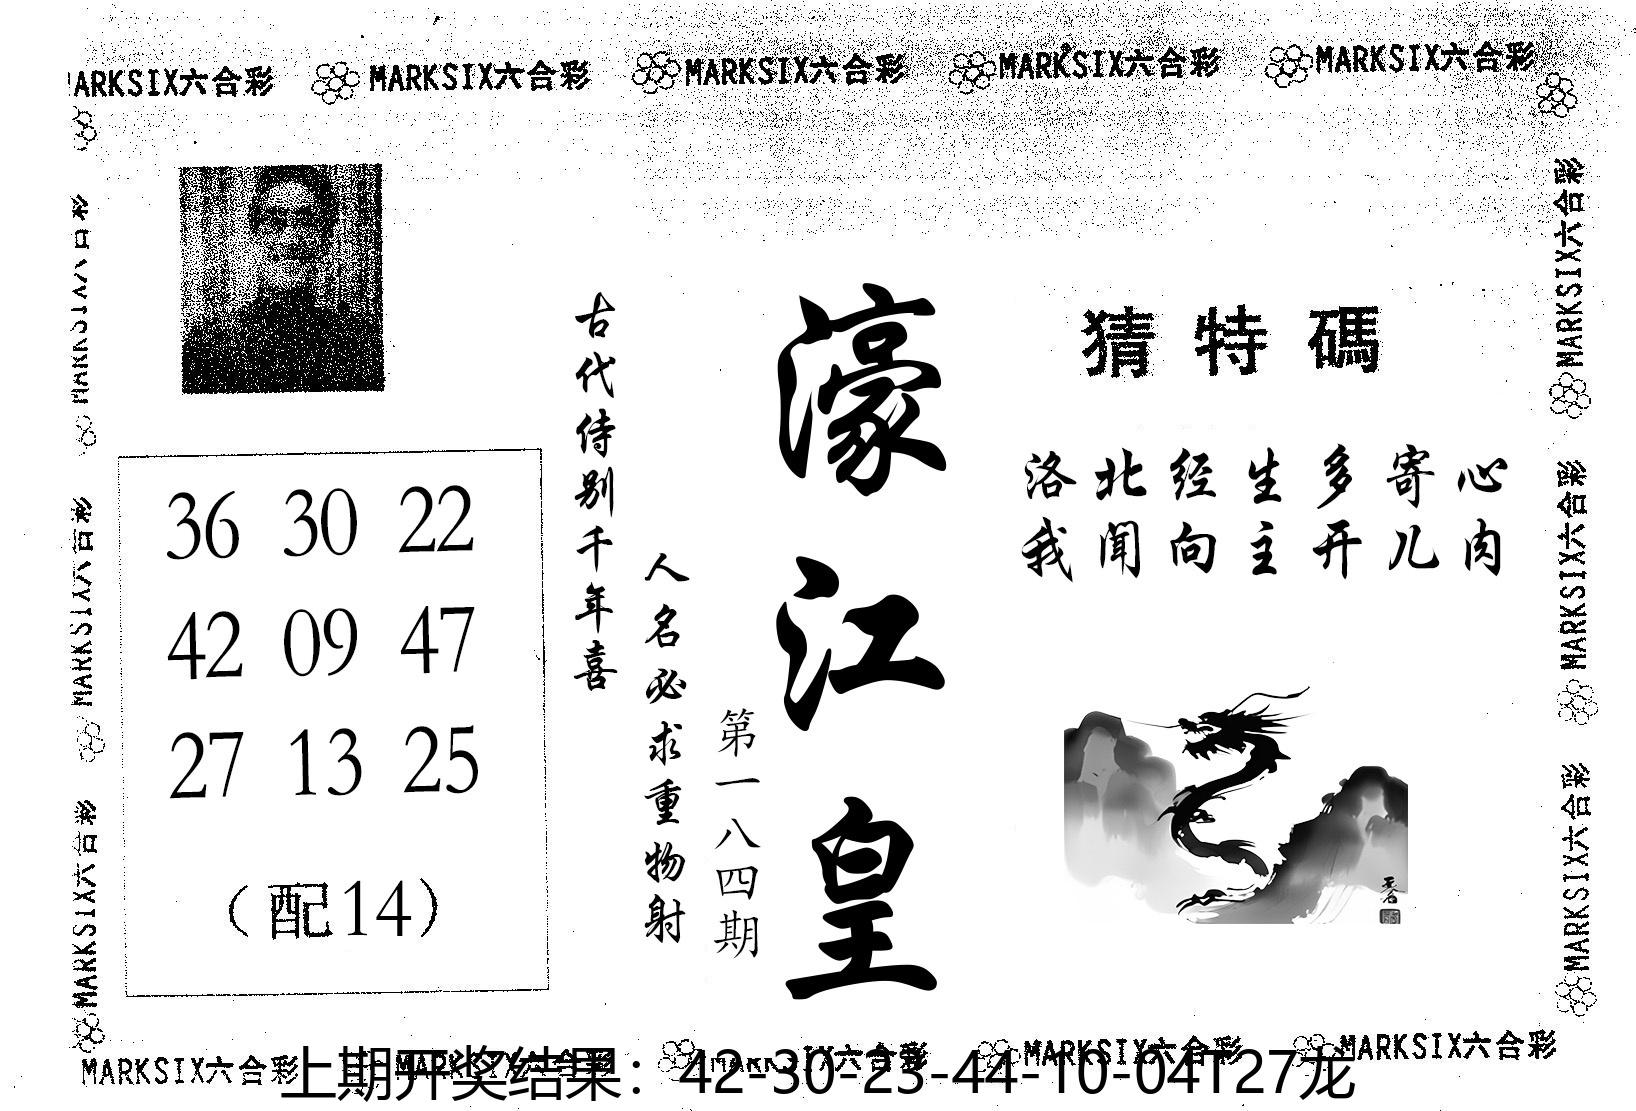 MARKSIX六合彩 MARKSIX六合彩 MARKSIX六合彩 MARKSIX六合彩 MARKSIX六合彩
MARKSIX六合彩
MARKSIX六合彩
MARKSIX六合彩
36 30 22
42 09 47
27 13 25
（配14）
古代侍别千年喜
人名必求重物射
第一八四期
濠江皇
猜特碼
洛北经生多寄心
我闻向主开儿肉
MARKSIX六合彩
MARKSIX六合彩
MARKSIX六合彩
MARKSIX六合彩 MARKSIX六合彩 MARKSIX六合彩 MARKSIX六合彩 MARKSIX六合彩
上期开奖结果：42-30-23-44-10-04T27龙